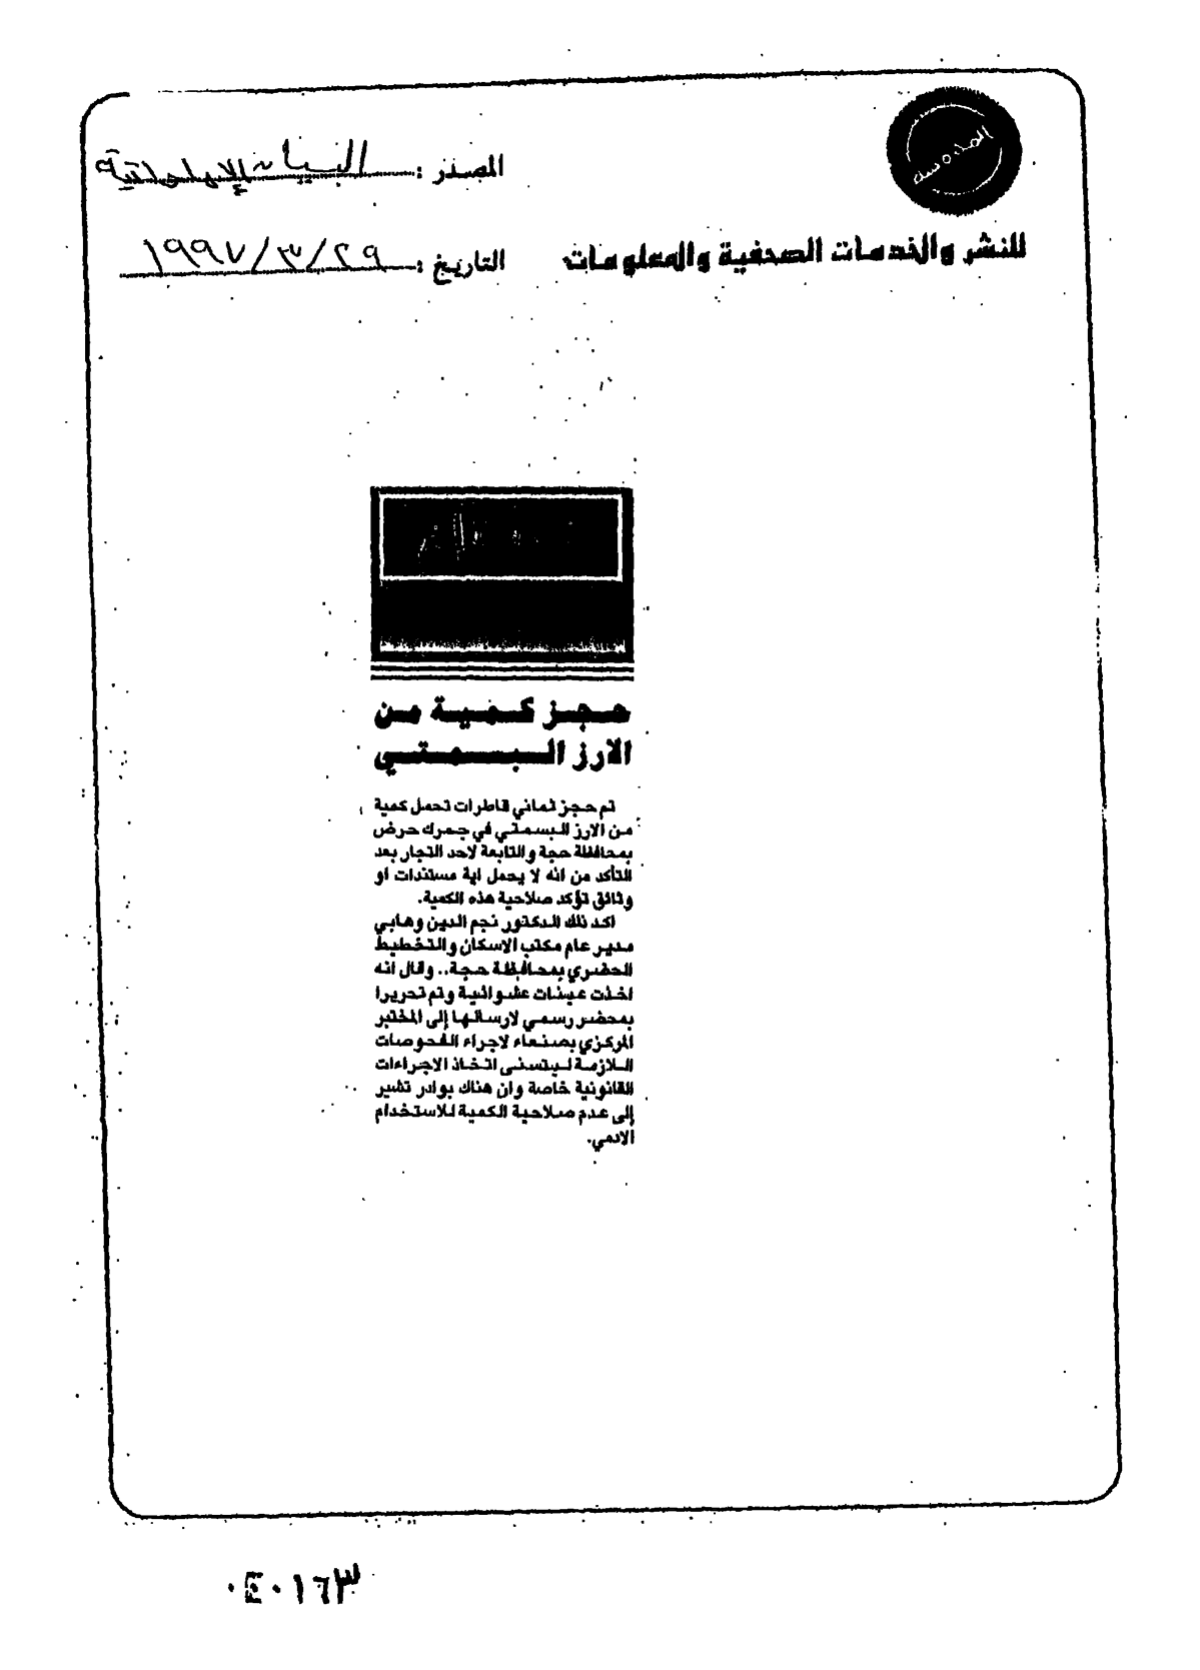 المصدر : البيان الإماراتية
للنشر والخدمات الصحفية والمعلومات
التاريخ : ١٩٩٧/٣/٢٩
حجز كمية من
الارز البسمتي
تم حجز ثماني قاطرات تحمل كمية
من الارز البسمتي في جمرك حرض
بمحافظة حجة والتابعة لاحد التجار بعد
التأكد من انه لا يحمل اية مستندات او
وثائق تؤكد صلاحية هذه الكمية.
اكد ذلك الدكتور نجم الدين وهابي
مدير عام مكتب الاسكان والتخطيط
الحضري بمحافظة حجة.. وقال انه
اخذت عينات عشوائية وتم تحريرا
بمحضر رسمي لارسالها إلى المختبر
المركزي بصنعاء لاجراء الفحوصات
اللازمة ليتسنى اتخاذ الاجراءات
القانونية خاصة وان هناك بوادر تشير
إلى عدم صلاحية الكمية للاستخدام
الادمي.
٠٤٠١٦٣